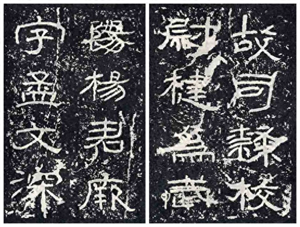 故司隸校
尉楗為武
陽楊君厥
字孟文深